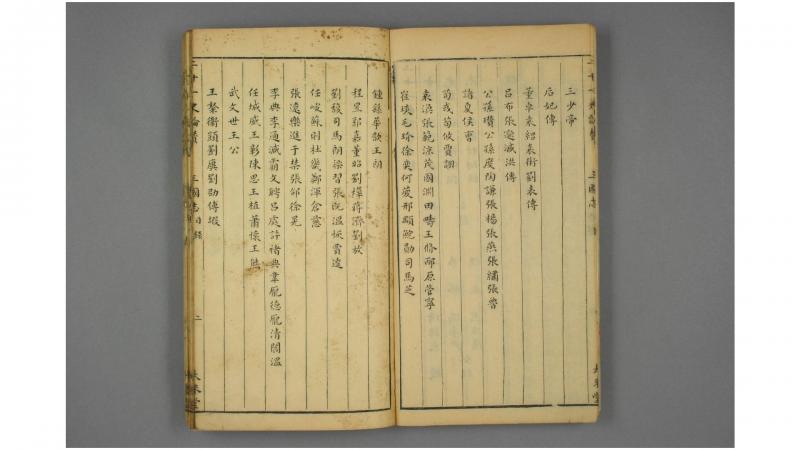 三少帝
后妃傳
董卓袁紹袁術劉表傳
呂布張邈臧洪傳
公孫瓚公孫度陶謙張楊張燕張繡張魯
諸夏侯曹
荀彧荀攸賈詡
袁渙張範涼茂國淵田疇王脩邴原管寧
崔琰毛玠徐奕何夔邢顒鮑勛司馬芝
鍾繇華歆王朗
程昱郭嘉董昭劉曄蔣濟劉放
劉馥司馬朗梁習張既溫恢賈逵
任峻蘇則杜畿鄭渾倉慈
張遼樂進于禁張郃徐晃
李典李通臧霸文聘呂虔許褚典韋龐德龐淯閻溫
任城威王彰陳思王植蕭懷王熊
武文世王公
王粲衛顗劉廙劉劭傳嘏
三國志目錄 二